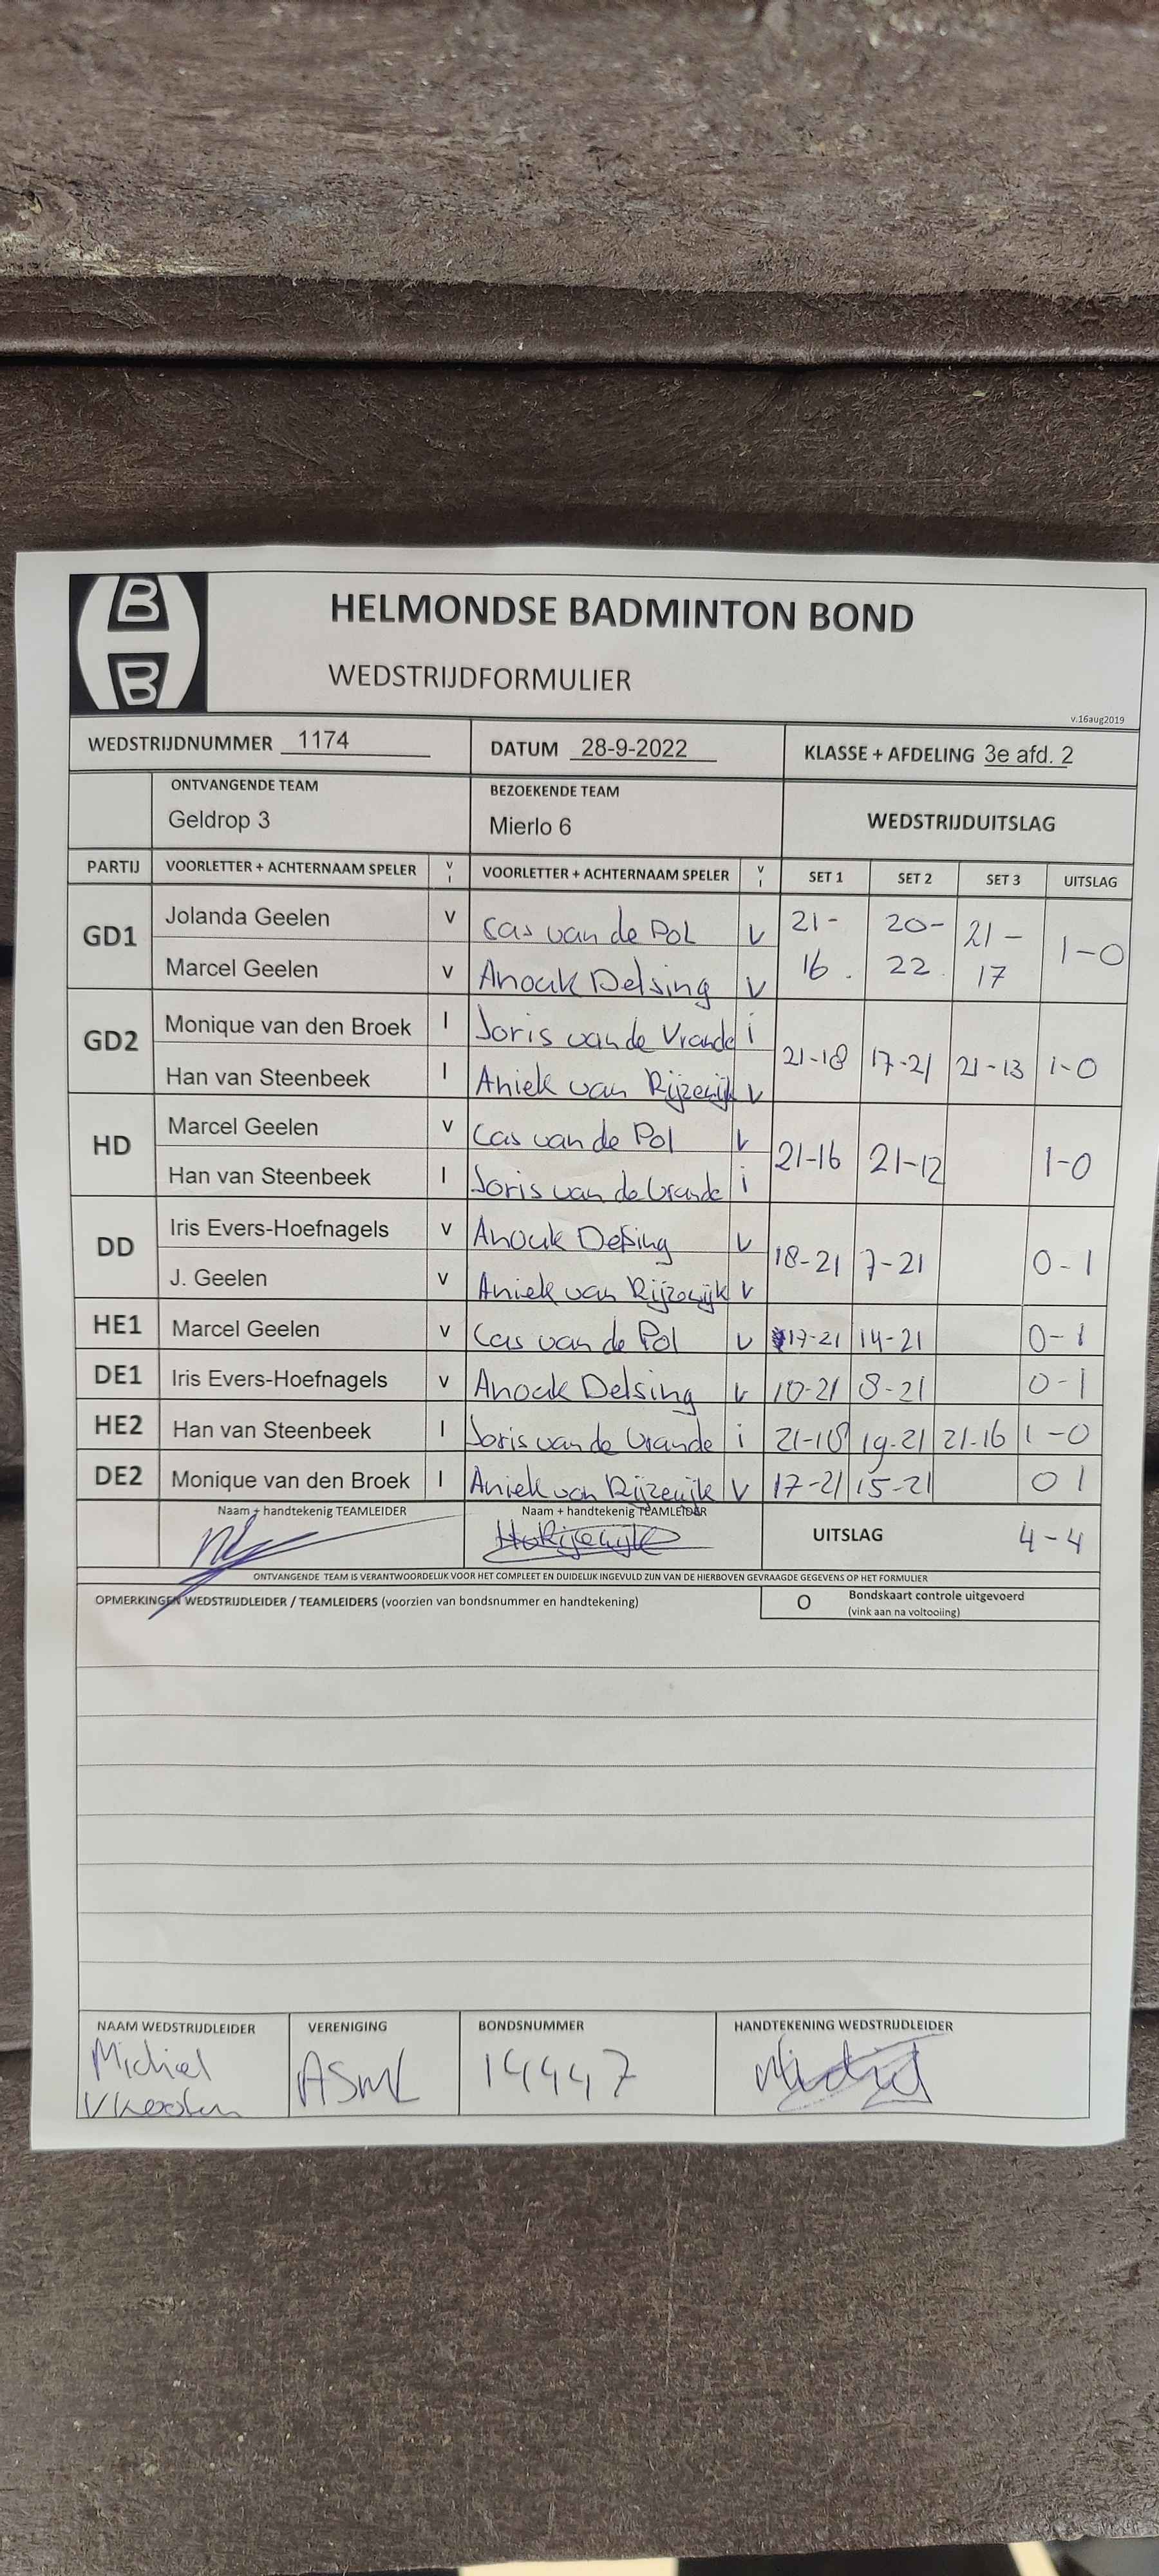 B
B
HELMONDSE BADMINTON BOND
WEDSTRIJDFORMULIER
v.16aug2019
WEDSTRIJDNUMMER 1174 DATUM 28-9-2022 KLASSE + AFDELING 3e afd. 2
ONTVANGENDE TEAM BEZOEKENDE TEAM
Geldrop 3 Mierlo 6 WEDSTRIJDUITSLAG
PARTIJ VOORLETTER + ACHTERNAAM SPELER V I VOORLETTER + ACHTERNAAM SPELER V I SET 1 SET 2 SET 3 UITSLAG
GD1 Jolanda Geelen V Cas van de Pol V 21-16 20-22 21-17 1-0
Marcel Geelen V Anouk Delsing V
GD2 Monique van den Broek I Joris van de Vrande i 21-18 17-21 21-13 1-0
Han van Steenbeek I Aniek van Rijzewijk V
HD Marcel Geelen V Cas van de Pol V 21-16 21-12 1-0
Han van Steenbeek I Joris van de Vrande i
DD Iris Evers-Hoefnagels V Anouk Delsing V 18-21 7-21 0-1
J. Geelen V Aniek van Rijzewijk V
HE1 Marcel Geelen V Cas van de Pol V 17-21 14-21 0-1
DE1 Iris Evers-Hoefnagels V Anouk Delsing V 10-21 8-21 0-1
HE2 Han van Steenbeek I Joris van de Vrande i 21-18 19-21 21-16 1-0
DE2 Monique van den Broek I Aniek van Rijzewijk V 17-21 15-21 0 1
Naam + handtekenig TEAMLEIDER Naam + handtekenig TEAMLEIDER
UITSLAG 4-4
ONTVANGENDE TEAM IS VERANTWOORDELIJK VOOR HET COMPLEET EN DUIDELIJK INGEVULD ZIJN VAN DE HIERBOVEN GEVRAAGDE GEGEVENS OP HET FORMULIER
OPMERKINGEN WEDSTRIJDLEIDER / TEAMLEIDERS (voorzien van bondsnummer en handtekening) O Bondskaart controle uitgevoerd
(vink aan na voltooiing)
NAAM WEDSTRIJDLEIDER VERENIGING BONDSNUMMER HANDTEKENING WEDSTRIJDLEIDER
Michiel ASML 14447